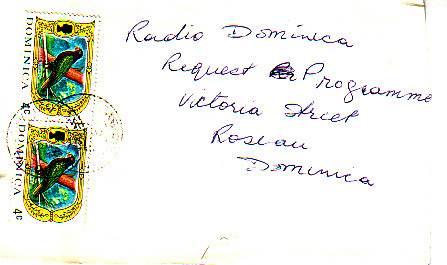 Radio Dominica
Request Programme
Victoria Street
Roseau
Dominica
DOMINICA 4c
DOMINICA 4c